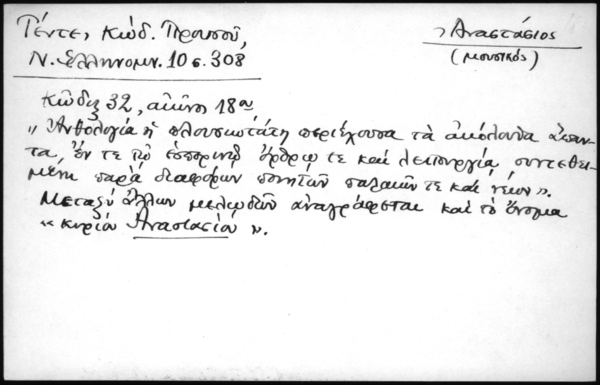 Γέντε, Κώδ. Προυσοῦ,
Ν. Ἑλληνομν. 10 σ. 308
Ἀναστάσιος
(μουσικός)
Κῶδιξ 32, αἰῶνος 18ου
"Ἀνθολογία ἡ πλουσιωτάτη περιέχουσα τὰ ἀκόλουθα ἅπαν-
τα, ἔν τε τῷ ἑσπερινῷ ὄρθρῳ τε καὶ λειτουργίᾳ, συντεθει-
μένη παρὰ διαφόρων ποιητῶν παλαιῶν τε καὶ νέων".
Μεταξὺ ἄλλων μελῳδῶν ἀναγράφεται καὶ τὸ ὄνομα
"κυρίου Ἀναστασίου".